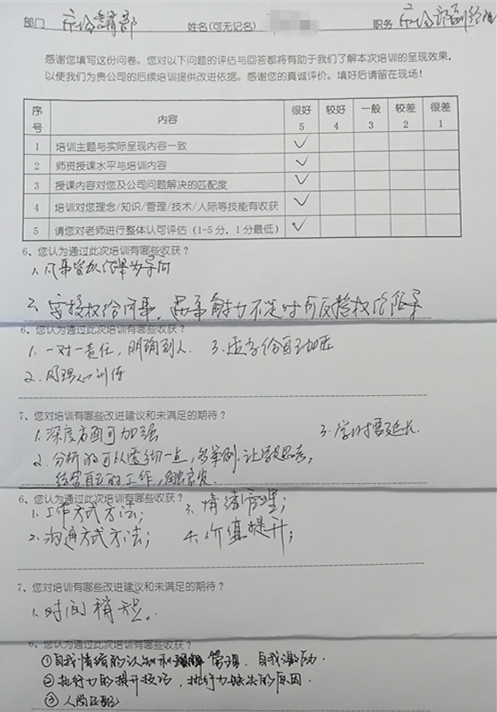 部门 市场 部 姓名(可无记名) 职务 市场
感谢您填写这份问卷。您对以下问题的评估与回答都将有助于我们了解本次培训的呈现效果，
以使我们为贵公司的后续培训提供改进依据。感谢您的真诚评价。填好后请留在现场！
序号 内容 很好 5 较好 4 一般 3 较差 2 很差 1
1 培训主题与实际呈现内容一致 ✓
2 师资授课水平与培训内容 ✓
3 授课内容对您及公司问题解决的匹配度 ✓
4 培训对您理念/知识/管理/技术/人际等技能有收获 ✓
5 请您对老师进行整体认可评估 (1-5分，1分最低) ✓
6、您认为通过此次培训有哪些收获？
1、凡事皆以结果为导向
2、 授权给同事，同事能力不足时可反授权给领导
6、您认为通过此次培训有哪些收获？
1、一对一责任，明确到人 3、
2、
7、您对培训有哪些改进建议和未满足的期待？
1、深度方面可加强 3、学时要延长
2、分析的可以透彻一点，多举例，让学员思考，
结合自己的工作，
6、您认为通过此次培训有哪些收获？
1、工作方式方法； 3、情绪管理；
2、沟通方式方法； 4、价值提升；
7、您对培训有哪些改进建议和未满足的期待？
1、时间稍短。
6、您认为通过此次培训有哪些收获？
①自我情绪的认知和 管理，自我激励。
②执行力的提升技巧，执行力缺失的原因。
③人岗匹配